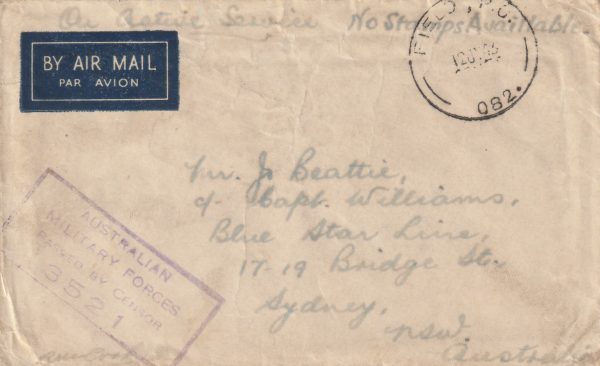 On Active Service No Stamps Available.
BY AIR MAIL
PAR AVION
FIELD P.O.
082.
AUSTRALIAN
MILITARY FORCES
PASSED BY CENSOR
3521
Mr. J. Beattie,
c/- Capt. Williams,
Blue Star Line,
17-19 Bridge St.
Sydney,
NSW.
Australia